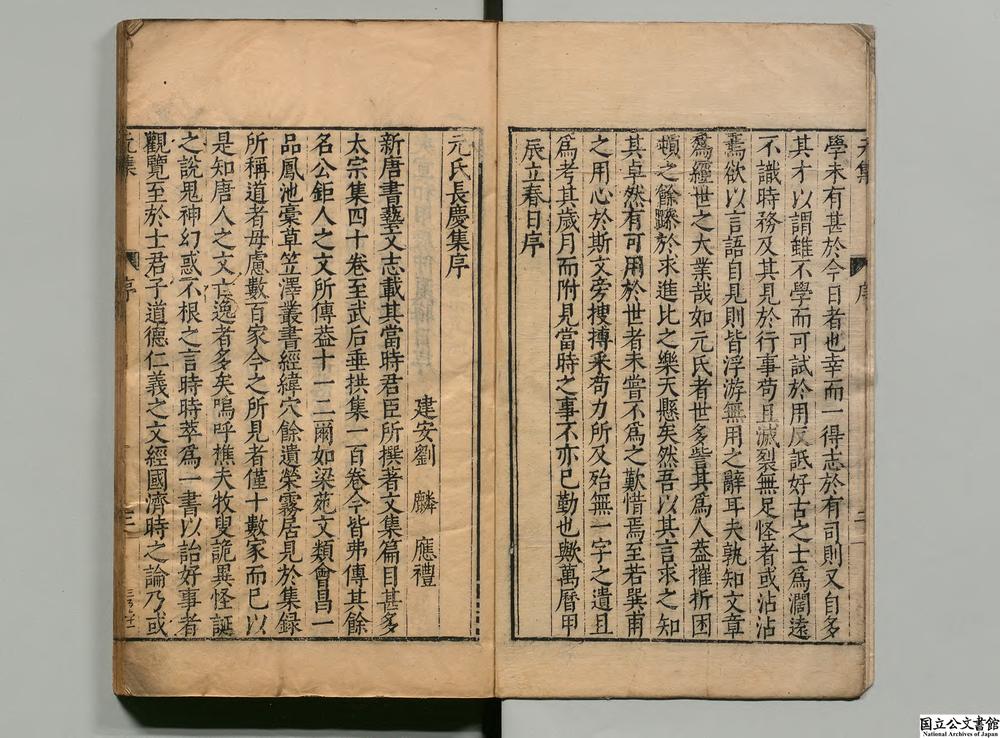 學未有甚於今日者也幸而一得志於有司則又自多
其才以謂雖不學而可試於用反詆好古之士爲濶遠
不識時務及其見於行事苟且滅裂無足怪者或沾沾
焉欲以言語自見則皆浮游無用之辭耳夫孰知文章
爲經世之大業哉如元氏者世多訾其爲人葢摧折困
頓之餘躁於求進比之樂天懸矣然吾以其言求之知
其卓然有可用於世者未嘗不爲之歎惜焉至若巽甫
之用心於斯文旁搜摶采苟力所及殆無一字之遺且
爲考其歲月而附見當時之事不亦已勤也歟萬曆甲
辰立春日序
元集
序
二
元氏長慶集序
建安劉 麟 應禮
新唐書藝文志載其當時君臣所撰著文集篇目甚多
太宗集四十卷至武后垂拱集一百卷今皆弗傳其餘
名公鉅人之文所傳葢十一二爾如梁苑文類會昌一
品鳳池藁草笠澤叢書經緯穴餘遺榮霧居見於集録
所稱道者毋慮數百家今之所見者僅十數家而已以
是知唐人之文亡逸者多矣嗚呼樵夫牧叟詭異怪誕
之說鬼神幻惑不根之言時時萃爲一書以詒好事者
觀覽至於士君子道德仁義之文經國濟時之論乃或
元集
序
三
国立公文書館
National Archives of Japan